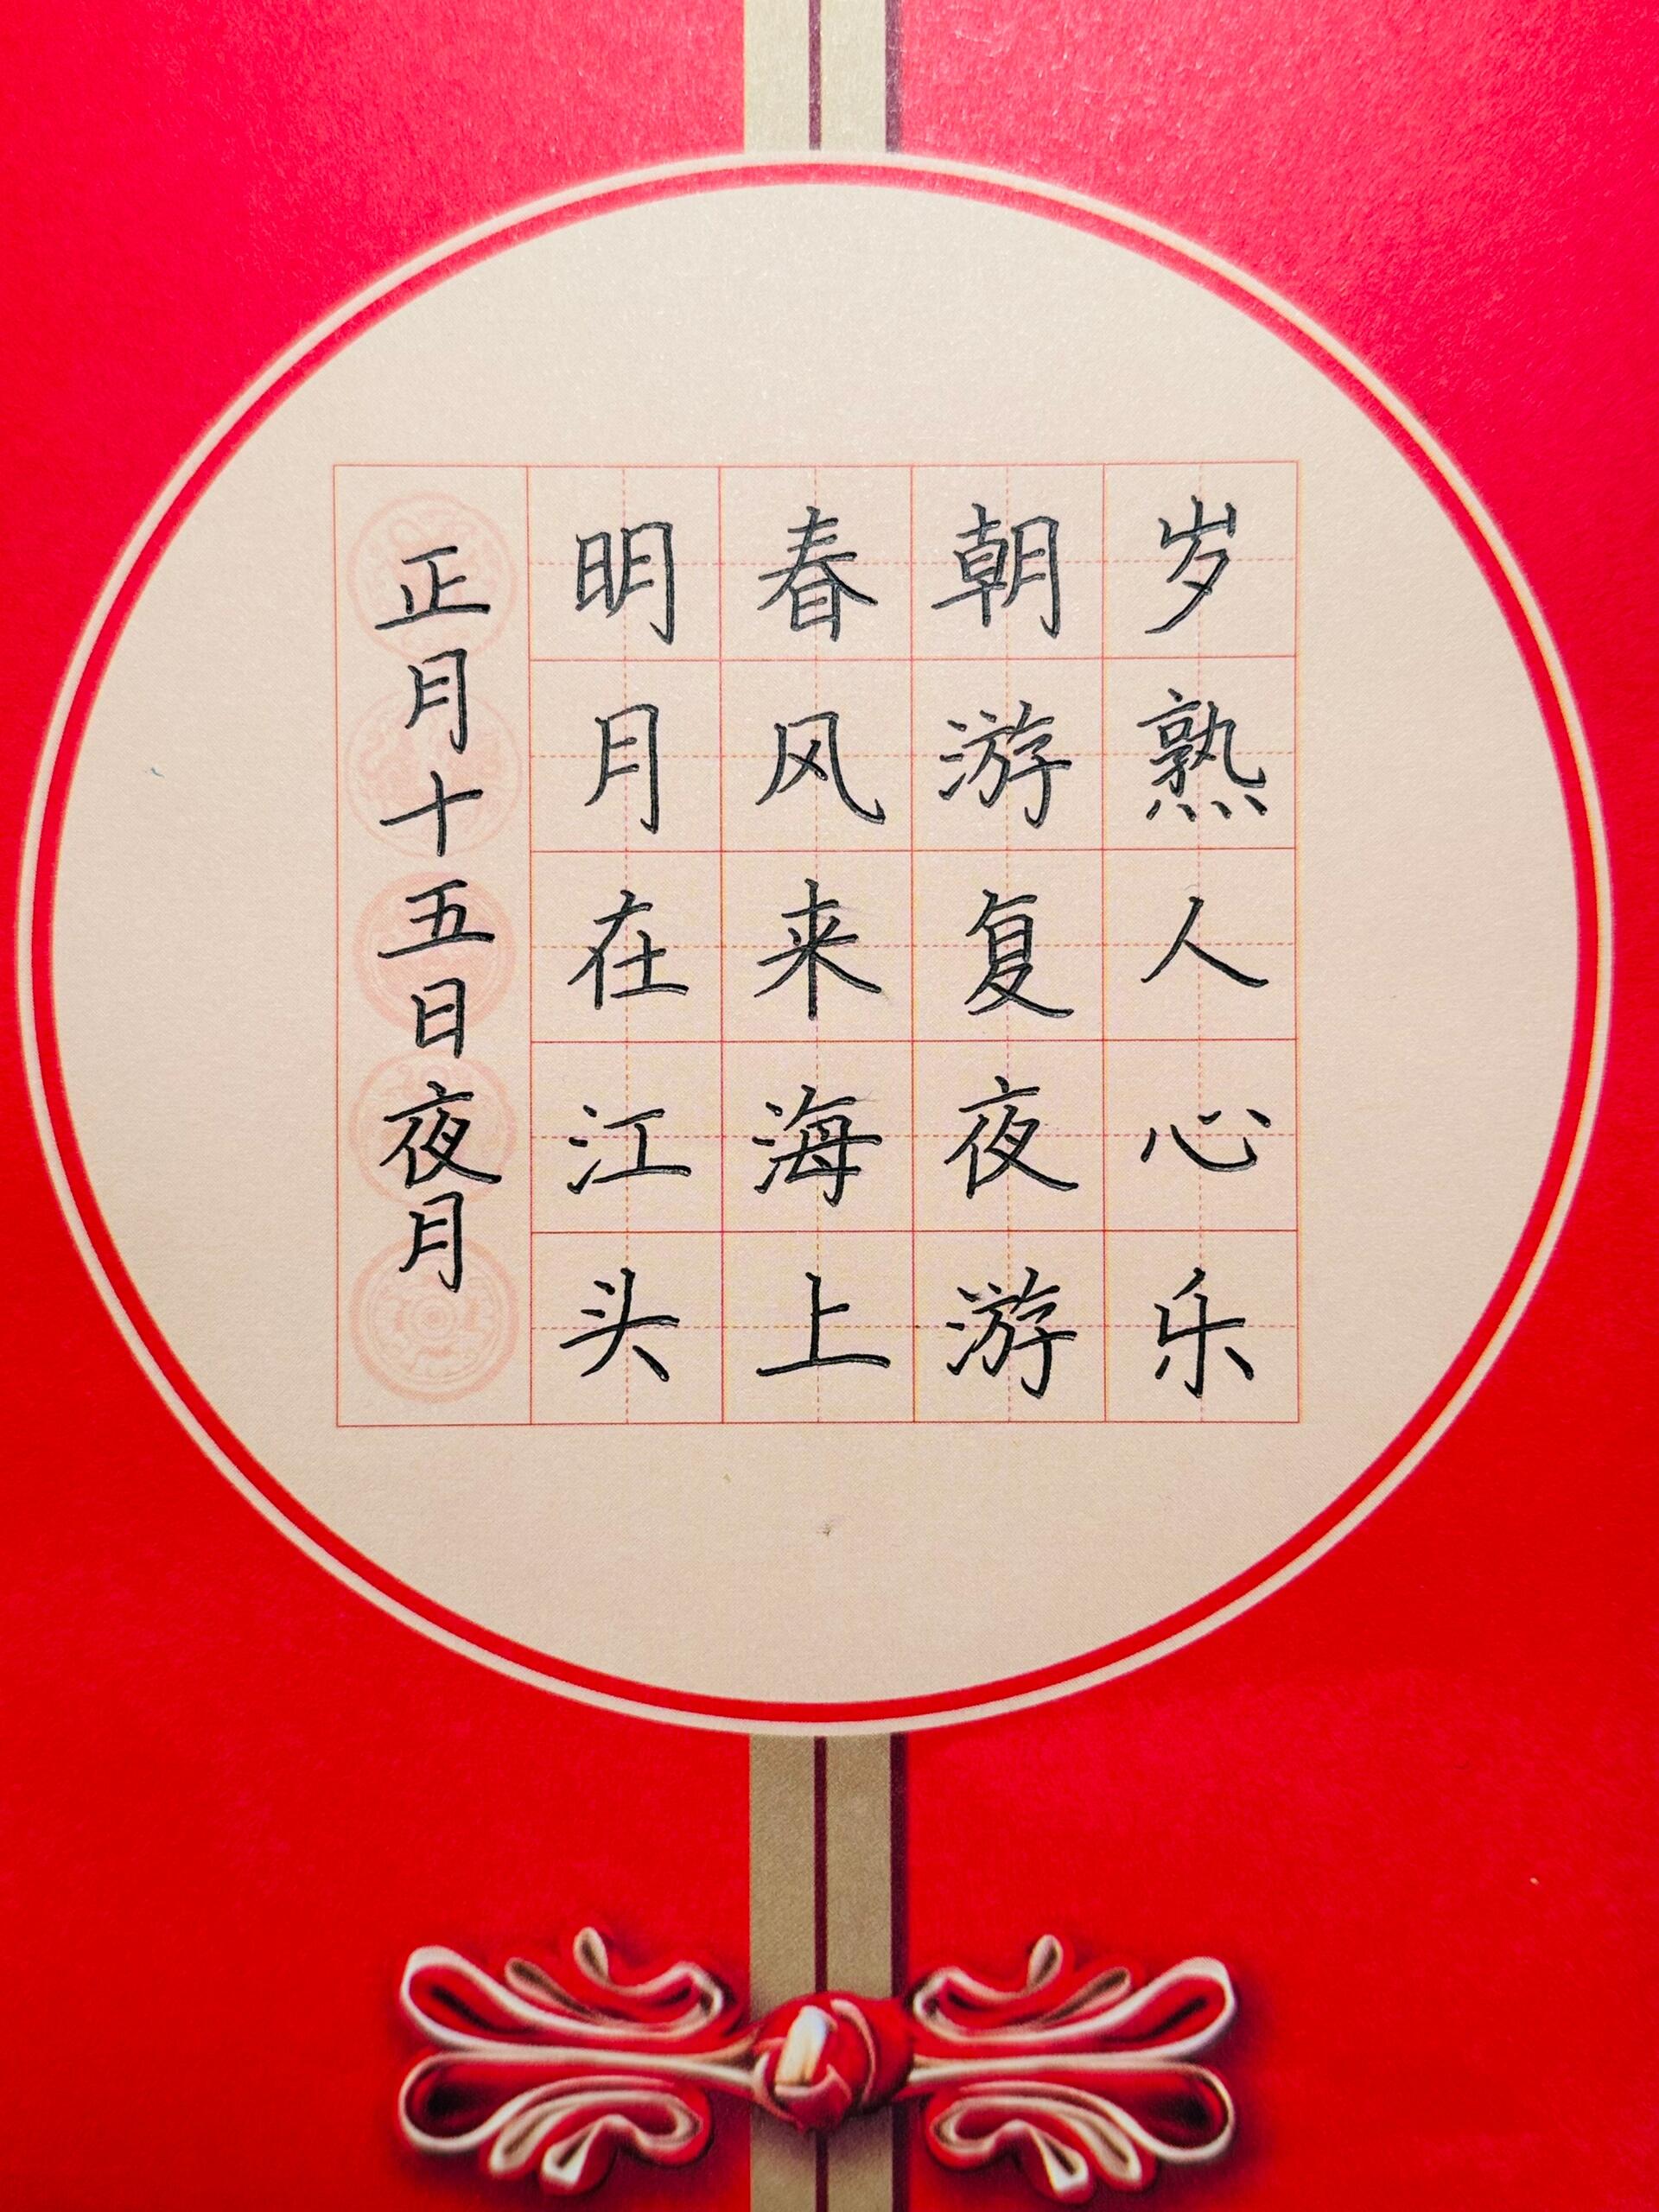 岁熟人心乐
朝游复夜游
春风来海上
明月在江头
正月十五日夜月